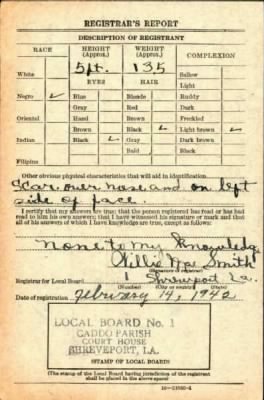 REGISTRAR'S REPORT
DESCRIPTION OF REGISTRANT
RACE HEIGHT (Approx.) WEIGHT (Approx.) COMPLEXION
White 5 ft. 135 Sallow
EYES HAIR Light
Negro ✓ Blue Blonde Ruddy
Gray Red Dark
Oriental Hazel Brown Freckled
Brown Black ✓ Light brown ✓
Indian Black ✓ Gray Dark brown
Bald Black
Filipino
Other obvious physical characteristics that will aid in identification
Scar over nose and on left
side of face
I certify that my answers are true; that the person registered has read or has had
read to him his own answers; that I have witnessed his signature or mark and that
all of his answers of which I have knowledge are true, except as follows:
None to my Knowledge
Willie Mae Smith
(Signature of registrar)
Registrar for Local Board 1 Shreveport La.
(Number) (City or county) (State)
Date of registration February 14, 1942
LOCAL BOARD No. 1
CADDO PARISH
COURT HOUSE
SHREVEPORT, LA.
(STAMP OF LOCAL BOARD)
(The stamp of the Local Board having jurisdiction of the registrant
shall be placed in the above space.)